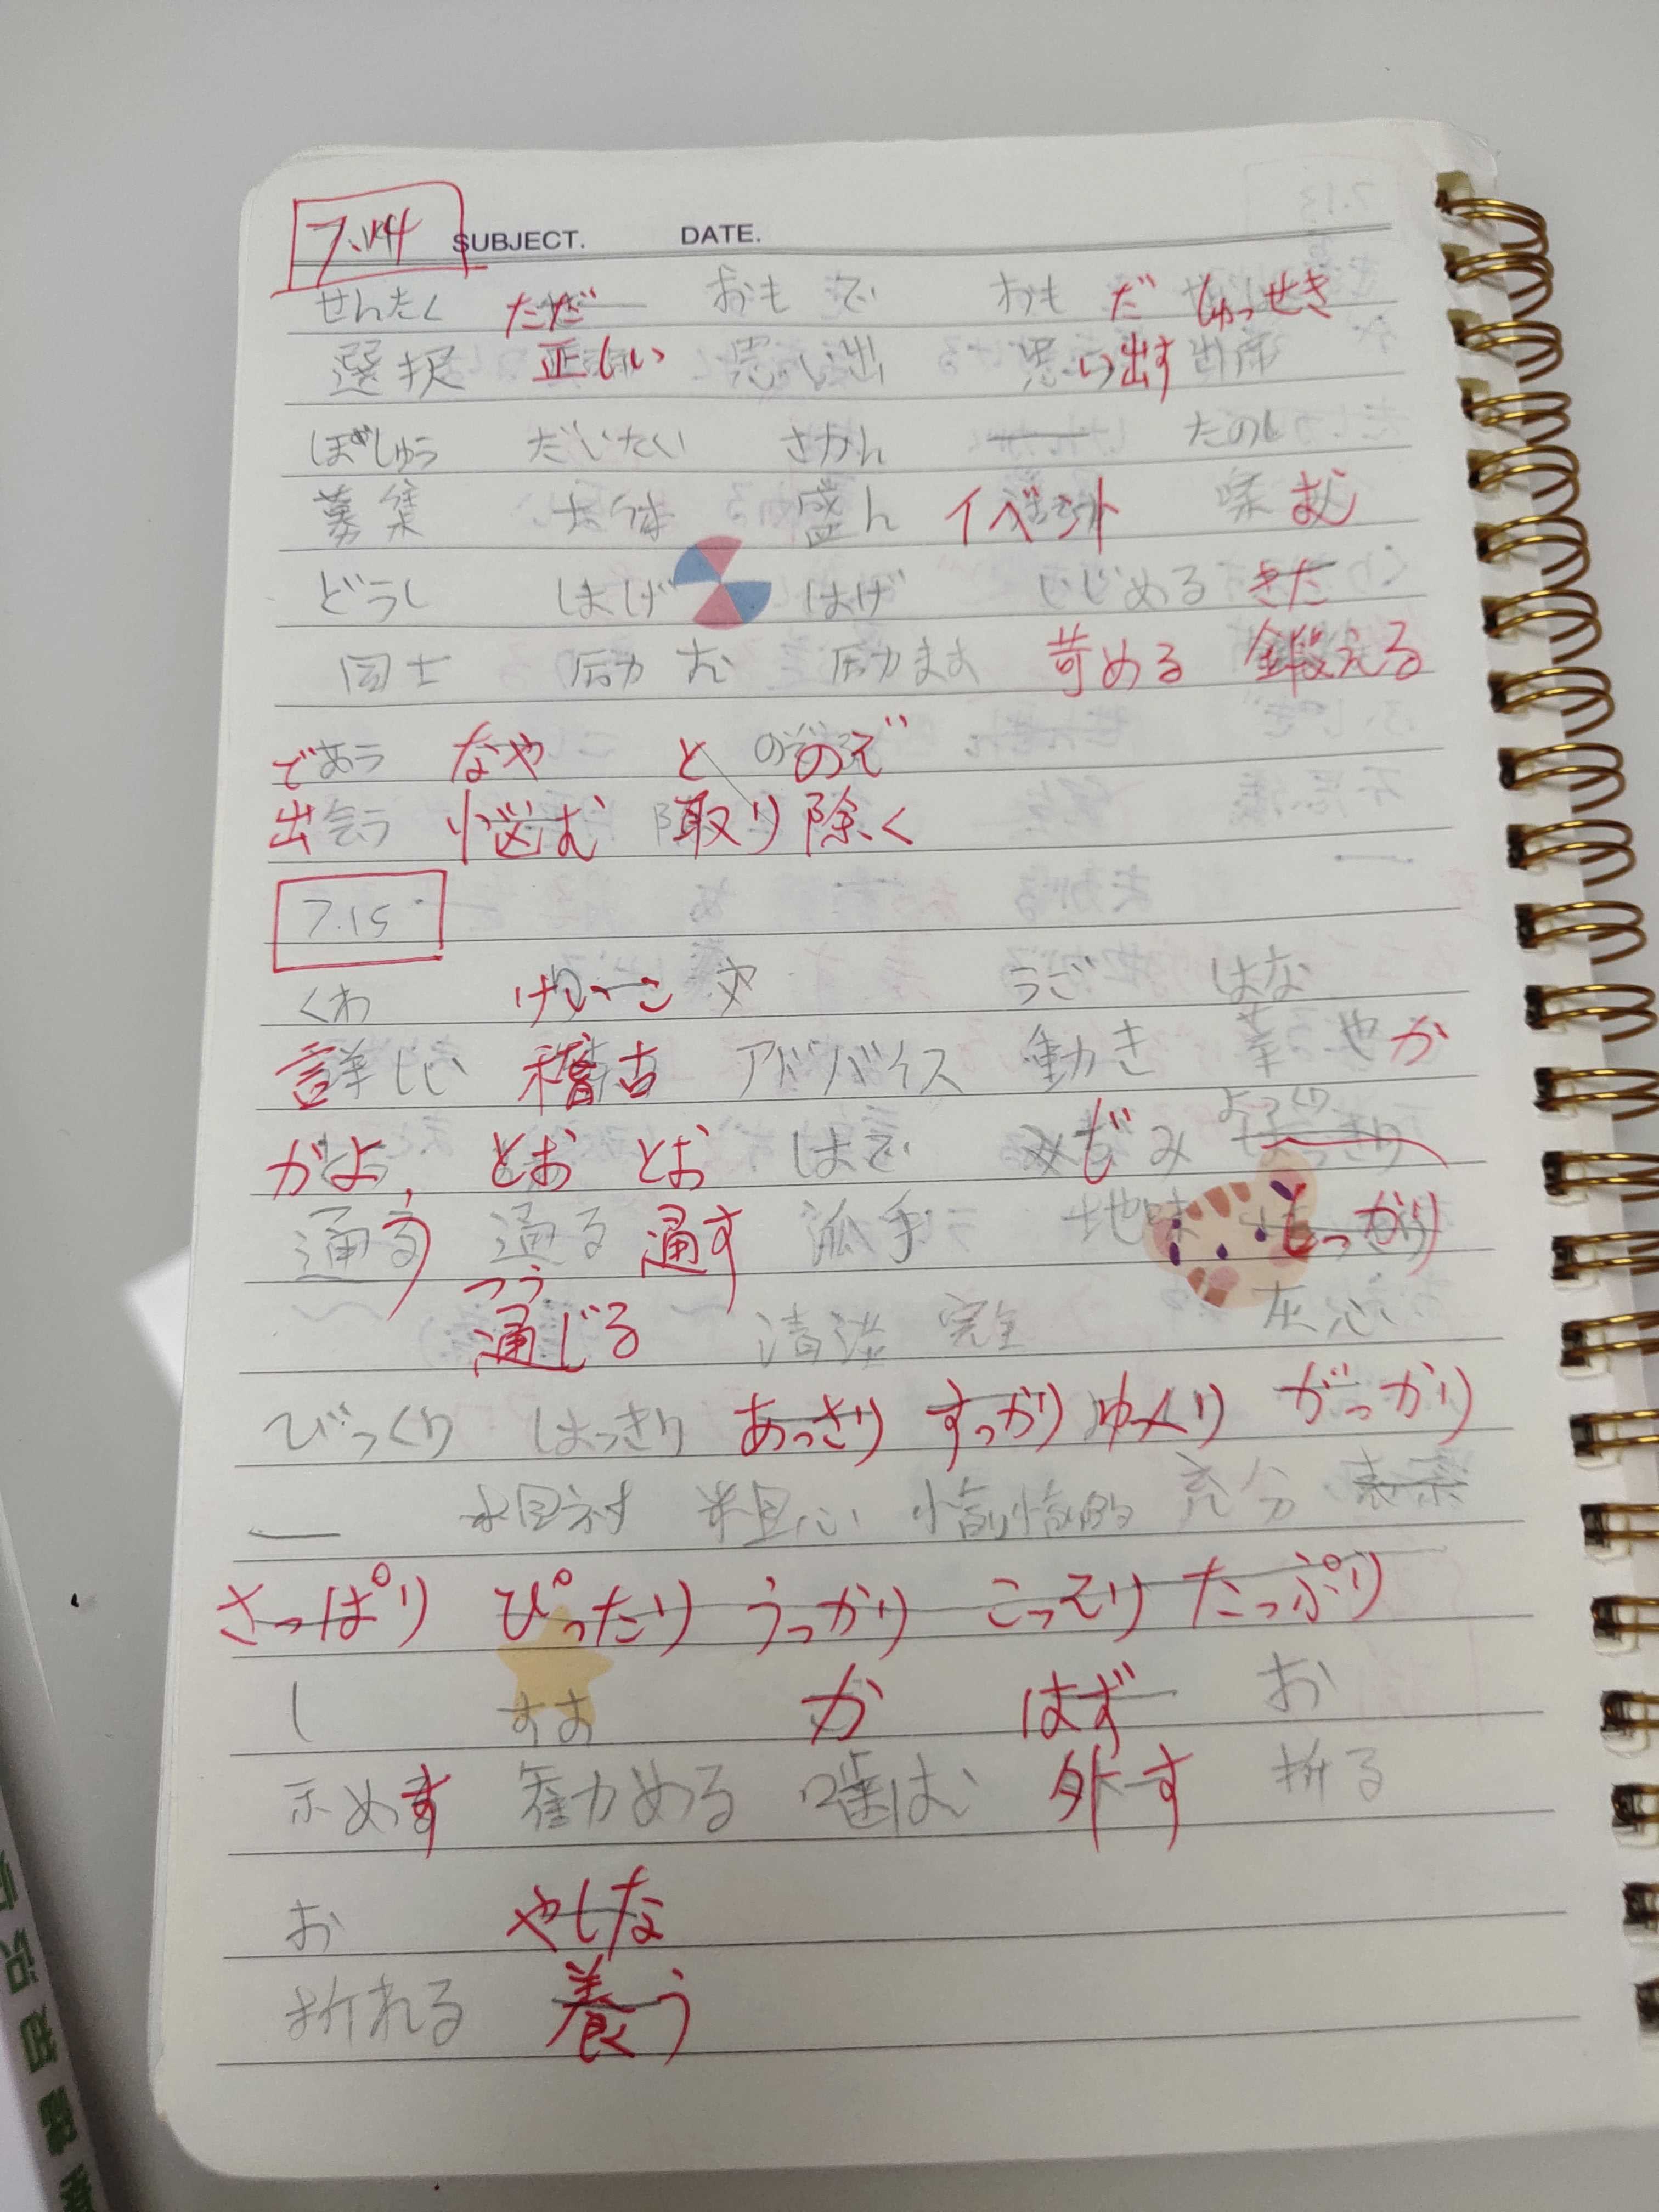 7.14 SUBJECT. DATE.
せんたく ただ おもで おもだ しゅっせき
選択 正しい 思い出 思い出す 出席
ぼしゅう だいたい さかん たのし
募集 大体 盛ん イベント 楽む
どうし はげ はげ いじめる きた
同士 励む 励ます 苛める 鍛える
であう なや と のぞ
出会う 悩む 取り除く
7.15
くわ けいこ うご はな
詳しい 稽古 アドバイス 動き 華やか
かよ とお とお はで みじみ
通う 通る 通す 派手 地味 しっかり
つう
通じる 清淡 完全 灰心
びっくり はっきり あっさり すっかり ゆくり がっかり
粗心 充分 表示
さっぱり ぴったり うっかり こっそり たっぷり
し すす か はず お
示めす 勧める 噛む 外す 折る
お やしな
折れる 養う